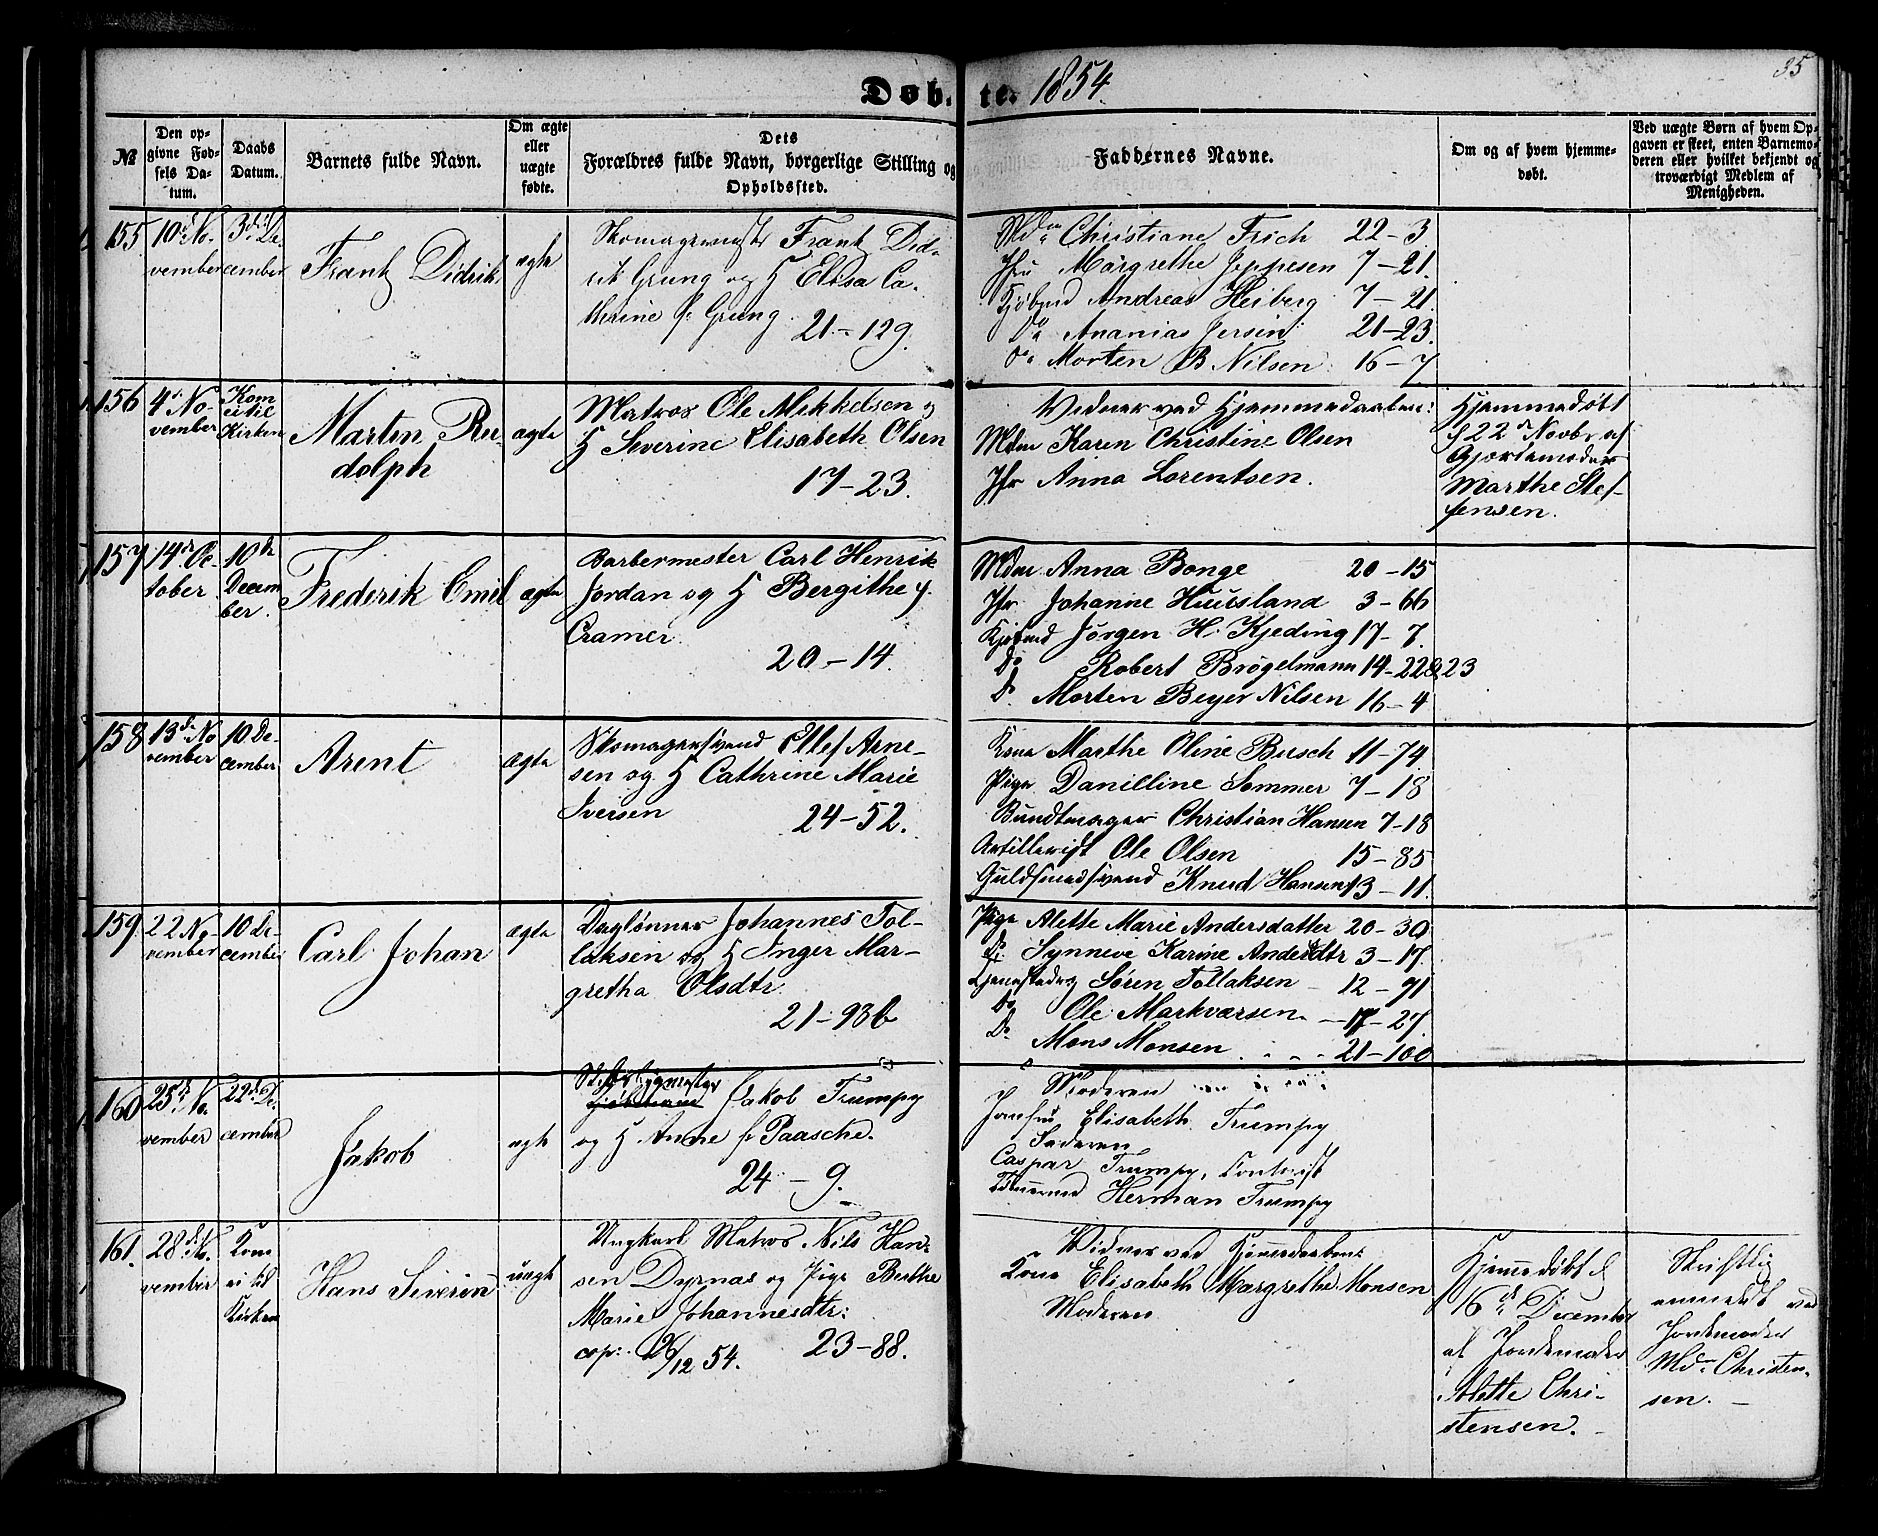 Døb- te. 1854.
35
№
Den op-
givne Fød-
sels Da-
tum.
Daabs
Datum.
Barnets fulde Navn.
Om ægte
eller
uægte
fødte.
Dets
Forældres fulde Navn, borgerlige Stilling og
Opholdssted.
Faddernes Navne.
Om og af hvem hjemme-
døbt.
Ved uægte Børn af hvem Op-
gaven er skeet, enten Barnemo-
deren eller hvilket bekjendt og
troværdigt Medlem af
Menigheden.
155
10de No-
vember
3die De-
cember
Frantz Didrik
ægte
Skomagermester Frantz Did-
rik Grung og H Elisa Ca-
thrine f. Grung
21-129.
Mdm Christiane Frich 22-3
Jfru Margrethe Jeppesen 7-21.
Kjøbmd Andreas Heiberg 7-21.
Do Ananias Jersin 21-23.
Do Morten B Nilsen 16-7
156
4de No-
vember
Kom
ei til
Kirken
Martin Ru-
dolph
ægte
Matros Ole Mikkelsen og
H Severine Elisabeth Olsen
17-23.
Vidner ved Hjemmedaaben:
Mdm Karen Christine Olsen
Jfr Anna Lorentsen.
Hjemmedøbt
d 22de Novbr af
Gjordemoder
Marthe Stef-
fensen.
157
14de Oc-
tober
10de
Decem
ber.
Frederik Emil
ægte
Barbermester Carl Henrik
Jordan og H Bergithe f.
Cramer.
20-14.
Mdm Anna Bonge 20-15
Jfr Johanne Huusland 3-66
Kjøbmd Jørgen H. Kjeding 17-7.
Do Robert Brögelmann 14-22&23
Do Morten Beyer Nilsen 16-4
158
13de No
vember
10 De-
cember
Arent
ægte
Skomagersvend Ellef Arne-
sen og H Cathrine Marie
Iversen
24-52.
Kone Marthe Oline Busch 11-74.
Pige Danilline Sommer 7-18
Bundtmager Christian Hansen 7-18
Artillerist Ole Olsen 15-85
Guldsmedsvend Knud Hansen 13-11.
159.
22 No-
vember
10 De-
cember
Carl Johan
ægte
Daglønner Johannes Tol-
laksen og H Inger Mar-
gretha Olsdtr.
21-93b
Pige Alette Marie Andersdatter 20-30
Do Synneve Karine Andersdtr 3-17
Tjenestedrg Søren Tollaksen 12-91
Do Ole Markvarsen 17-27
Do Mons Monsen 21-100
160
25de No-
vember
22de De-
cember
Jakob
ægte
Skibsbygmester
Jakob Trumpy
og H Anne f. Paasche.
24-9.
Moderen
Jomfru Elisabeth Trumpy
Faderen
Caspar Trumpy, Contorist
Herman Trumpy
161.
28de No-
vember
Kom
ei til
Kirken
Hans Severin
uægte
Ungkarl Matros Nils Han-
sen Dyrnas og Pige Berthe
Marie Johannesdtr:
cop: 26/12 54. 23-88.
Vidner ved Hjemmedaaben:
Kone Elisabeth Margrethe Monsen
Moderen
Hjemmedøbt d
16de December
af Jordemoder
Alette Chri-
stensen.
Skriftlig
anmeldt ved
Jordemoder
Mdm Christen-
sen.